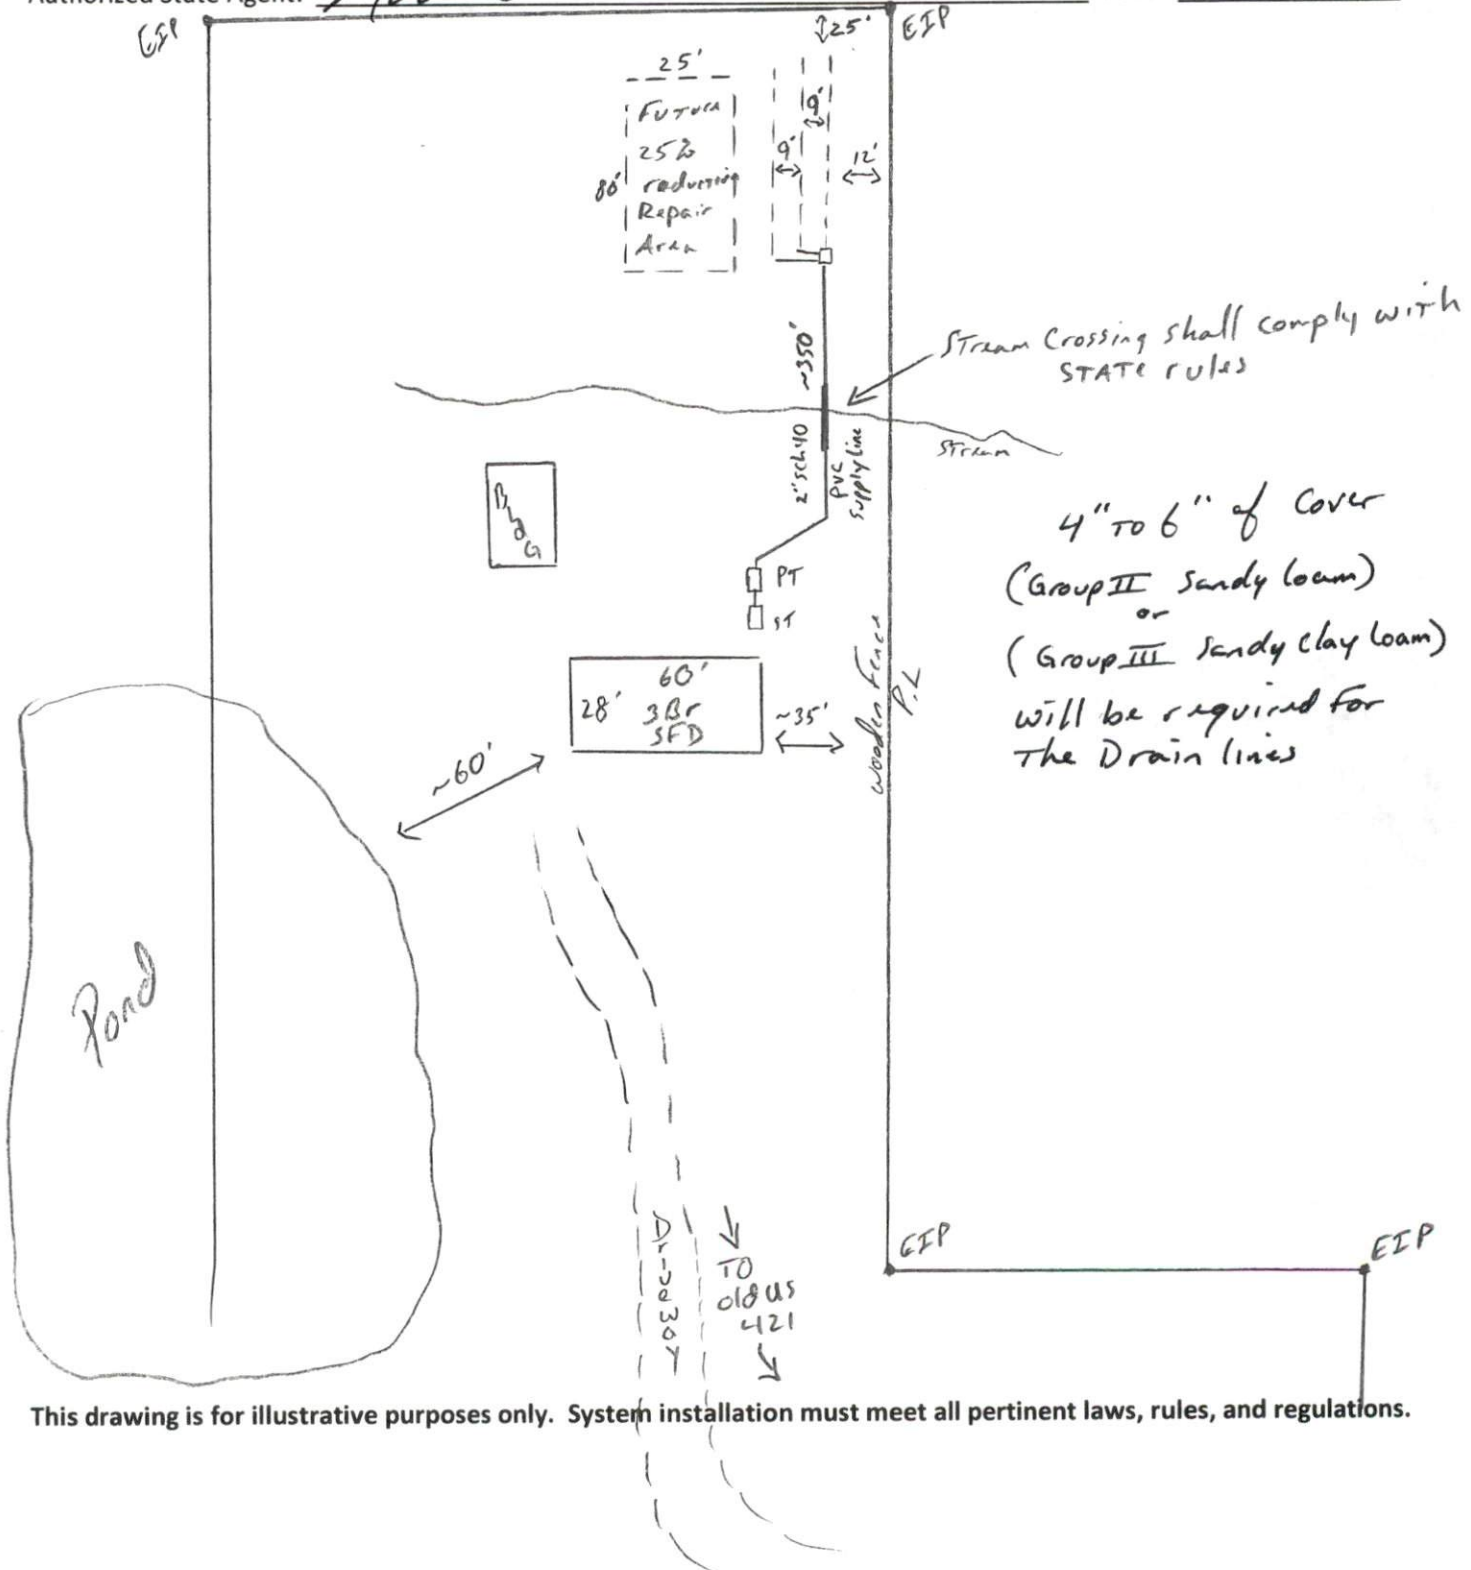 Authorized State Agent:
EIP
EIP
25'
25'
Future
25%
reduction
Repair
Area
80'
9'
9'
12'
~350'
Stream Crossing shall comply with
STATE rules
Stream
2" sch 40
PVC
Supply line
BLDG
PT
ST
4" TO 6" of Cover
(Group II Sandy loam)
or
(Group III Sandy Clay loam)
will be required for
The Drain lines
60'
28'
3Br
SFD
~35'
Wooden Fence
P.L
~60'
Pond
EIP
EIP
Driveway
TO
old US
421
This drawing is for illustrative purposes only. System installation must meet all pertinent laws, rules, and regulations.